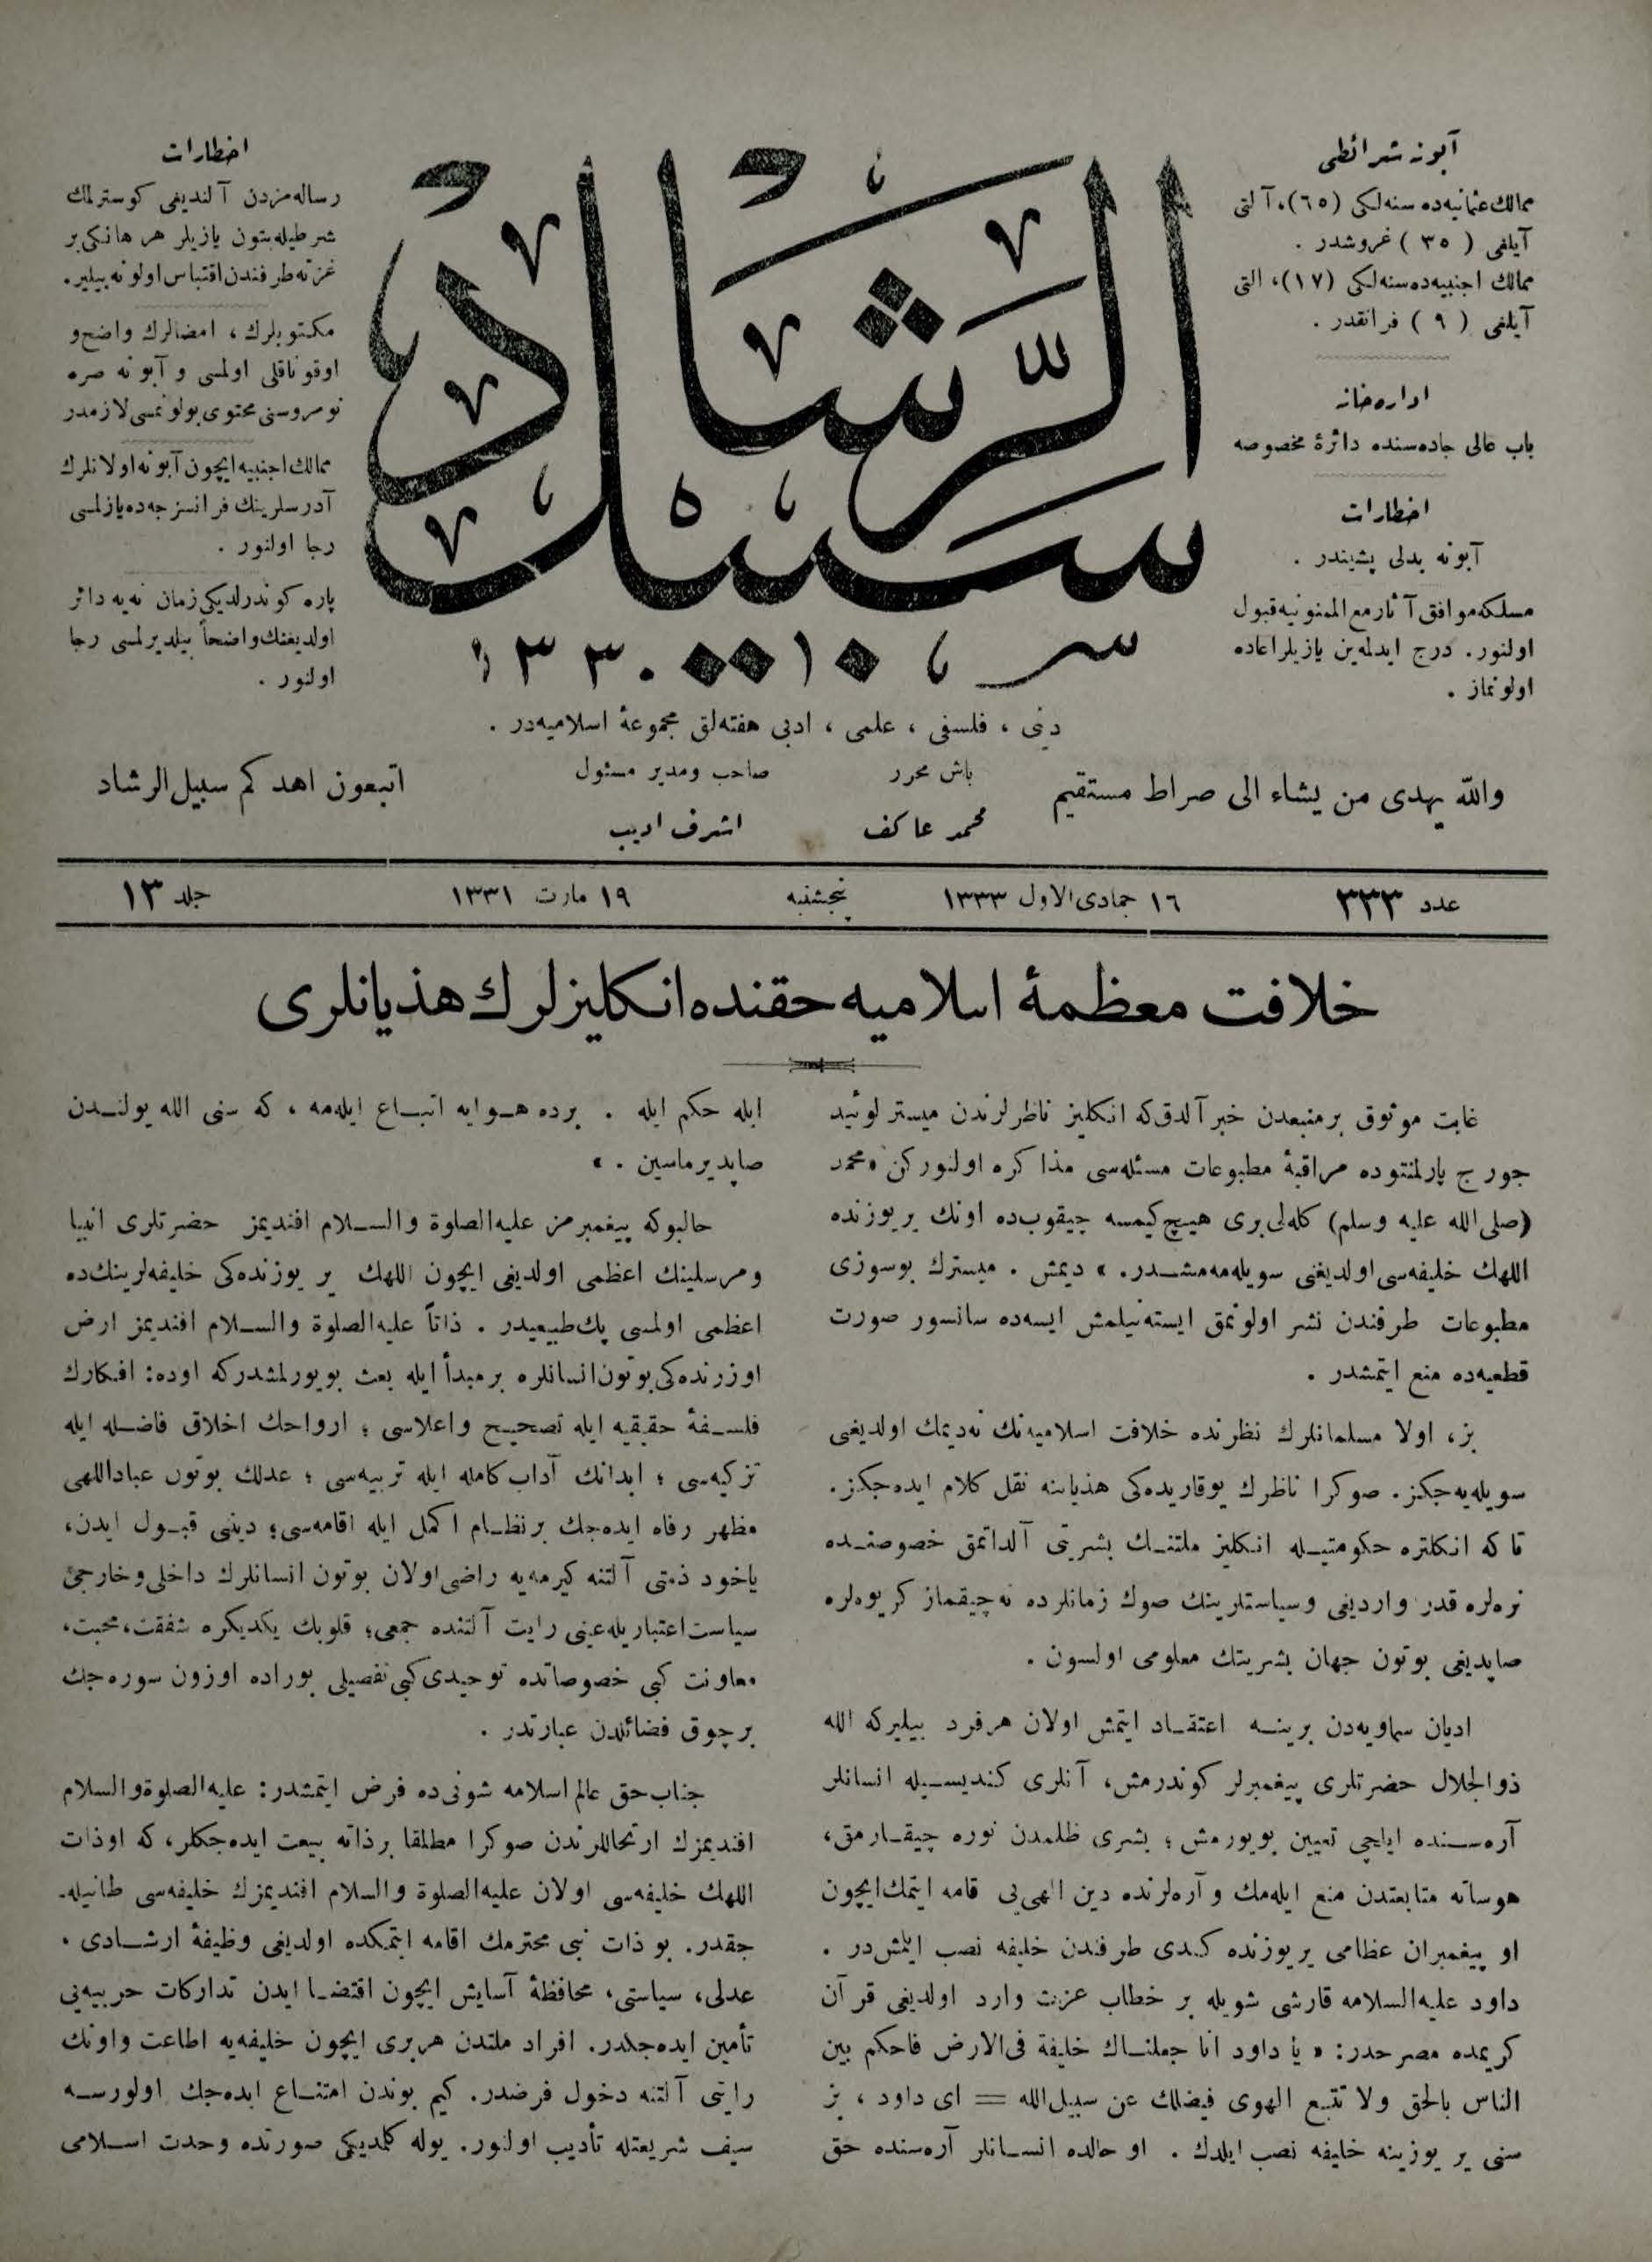 آبونه شرائطی
ممالك عثمانیه‌ده سنه‌لكی (٦٥)، آلتی
آیلغی ( ٣٥ ) غروشدر .
ممالك اجنبیه‌ده سنه‌لكی (١٧)، التی
آیلغی ( ٩ ) فرانقدر .
اداره‌خانه
باب عالی جاده‌سنده دائرۀ مخصوصه
اخطارات
آبونه بدلی پشیندر .
مسلكه موافق آثار مع الممنونیه قبول
اولنور. درج ایدلمه‌ین یازیلر اعاده
اولونماز .
سبیل الرشاد
١٣٣٠
اخطارات
رساله‌مزدن آلندیغی كوسترلمك
شرطیله بتون یازیلر هر هانكی بر
غزته طرفندن اقتباس اولونه‌بیلیر.
مكتوبلرك ، امضالرك واضح و
اوقوناقلی اولمسی و آبونه صره
نومروسنی محتوی بولونمسی لازمدر
ممالك اجنبیه ایچون آبونه اولانلرك
آدرسلرینك فرانسزجه‌ده یازلمسی
رجا اولنور .
پاره كوندرلدیكی زمان نه‌یه دائر
اولدیغنك واضحاً بیلدیرلمسی رجا
اولنور .
دینی ، فلسفی ، علمی ، ادبی هفته‌لق مجموعۀ اسلامیه‌در .
والله یهدی من یشاء الی صراط مستقیم
باش محرر
محمد عاكف
صاحب ومدیر مسئول
اشرف ادیب
اتبعون اهدكم سبیل الرشاد
عدد ٣٣٣
١٦ جمادی‌الاول ١٣٣٣
پنجشنبه
١٩ مارت ١٣٣١
جلد ١٣
خلافت معظمۀ اسلامیه حقنده انكلیزلرك هذیانلری
غایت موثوق بر منبعدن خبر آلدق كه انكلیز ناظرلرندن میستر لوئید
جورج پارلمنتوده مراقبۀ مطبوعات مسئله‌سی مذاكره اولنوركن «محمد
(صلی‌الله علیه وسلم) كله‌لی بری هیچ كیمسه چیقوب‌ده اونك یریوزنده
اللهك خلیفه‌سی اولدیغنی سویله‌مه‌مشدر. » دیمش . میسترك بوسوزی
مطبوعات طرفندن نشر اولونمق ایسته‌نیلمش ایسه‌ده سانسور صورت
قطعیه‌ده منع ایتمشدر .
بز، اولا مسلمانلرك نظرنده خلافت اسلامیه‌نك نه‌دیمك اولدیغنی
سویله‌یه‌جكز. صوكرا ناظرك یوقاریده‌كی هذیاننه نقل كلام ایده‌جكز.
تاكه انكلتره حكومتیله انكلیز ملتنك بشریتی آلداتمق خصوصنده
نره‌لره قدر واردیغی وسیاستلرینك صوك زمانلرده نه‌چیقماز كریوه‌لره
صاپدیغی بوتون جهان بشریتك معلومی اولسون .
ادیان سماویه‌دن برینه اعتقاد ایتمش اولان هر فرد بیلیركه الله
ذوالجلال حضرتلری پیغمبرلر كوندرمش، آنلری كندیسیله انسانلر
آره‌سنده ایلچی تعیین بویورمش ؛ بشری ظلمدن نوره چیقارمق،
هوساته متابعتدن منع ایله‌مك و آره‌لرنده دین الهی‌یی قامه ایتمك ایچون
او پیغمبران عظامی یریوزنده كندی طرفندن خلیفه نصب ایلمش‌در .
داود علیه‌السلامه قارشی شویله بر خطاب عزت وارد اولدیغی قرآن
كریمده مصرحدر: « یا داود انا جعلناك خلیفة فی‌الارض فاحكم بین
الناس بالحق ولا تتبع الهوی فیضلك عن سبیل‌الله = ای داود ، بز
سنی یر یوزینه خلیفه نصب ایلدك . او حالده انسانلر آره‌سنده حق
ایله حكم ایله . برده هوایه اتباع ایله‌مه ، كه سنی الله یولندن
صاپدیرماسین . »
حالبوكه پیغمبرمز علیه‌الصلوة والسلام افندیمز حضرتلری انبیا
ومرسلینك اعظمی اولدیغی ایچون اللهك یر یوزنده‌كی خلیفه‌لرینك‌ده
اعظمی اولمسی پك طبیعیدر . ذاتاً علیه‌الصلوة والسلام افندیمز ارض
اوزرنده‌كی بوتون انسانلره برمبدأ ایله بعث بویورلمشدركه اوده: افكارك
فلسفۀ حقیقیه ایله تصحیح واعلاسی ؛ ارواحك اخلاق فاضله ایله
تزكیه‌سی ؛ ابدانك آداب كامله ایله تربیه‌سی ؛ عدلك بوتون عباداللهی
مظهر رفاه ایده‌جك بر نظام اكمل ایله اقامه‌سی؛ دینی قبول ایدن،
یاخود ذمتی آلتنه كیرمه‌یه راضی اولان بوتون انسانلرك داخلی وخارجی
سیاست اعتباریله عینی رایت آلتنده جمعی؛ قلوبك یكدیكره شفقت، محبت،
معاونت كبی خصوصاتده توحیدی كبی تفصیلی بوراده اوزون سوره‌جك
برچوق فضائلدن عبارتدر .
جناب حق عالم اسلامه شونی‌ده فرض ایتمشدر: علیه‌الصلوة والسلام
افندیمزك ارتحاللرندن صوكرا مطلقا برذاته بیعت ایده‌جكلر، كه اوذات
اللهك خلیفه‌سی اولان علیه‌الصلوة والسلام افندیمزك خلیفه‌سی طانیله‌-
جقدر. بو ذات نبی محترمك اقامه ایتمكده اولدیغی وظیفۀ ارشادی ،
عدلی، سیاستی، محافظۀ آسایش ایچون اقتضا ایدن تداركات حربیه‌یی
تأمین ایده‌جكدر. افراد ملتدن هربری ایچون خلیفه‌یه اطاعت واونك
رایتی آلتنه دخول فرضدر. كیم بوندن امتناع ایده‌جك اولورسه
سیف شریعتله تأدیب اولنور. یوله كلمدیكی صورتده وحدت اسلامی